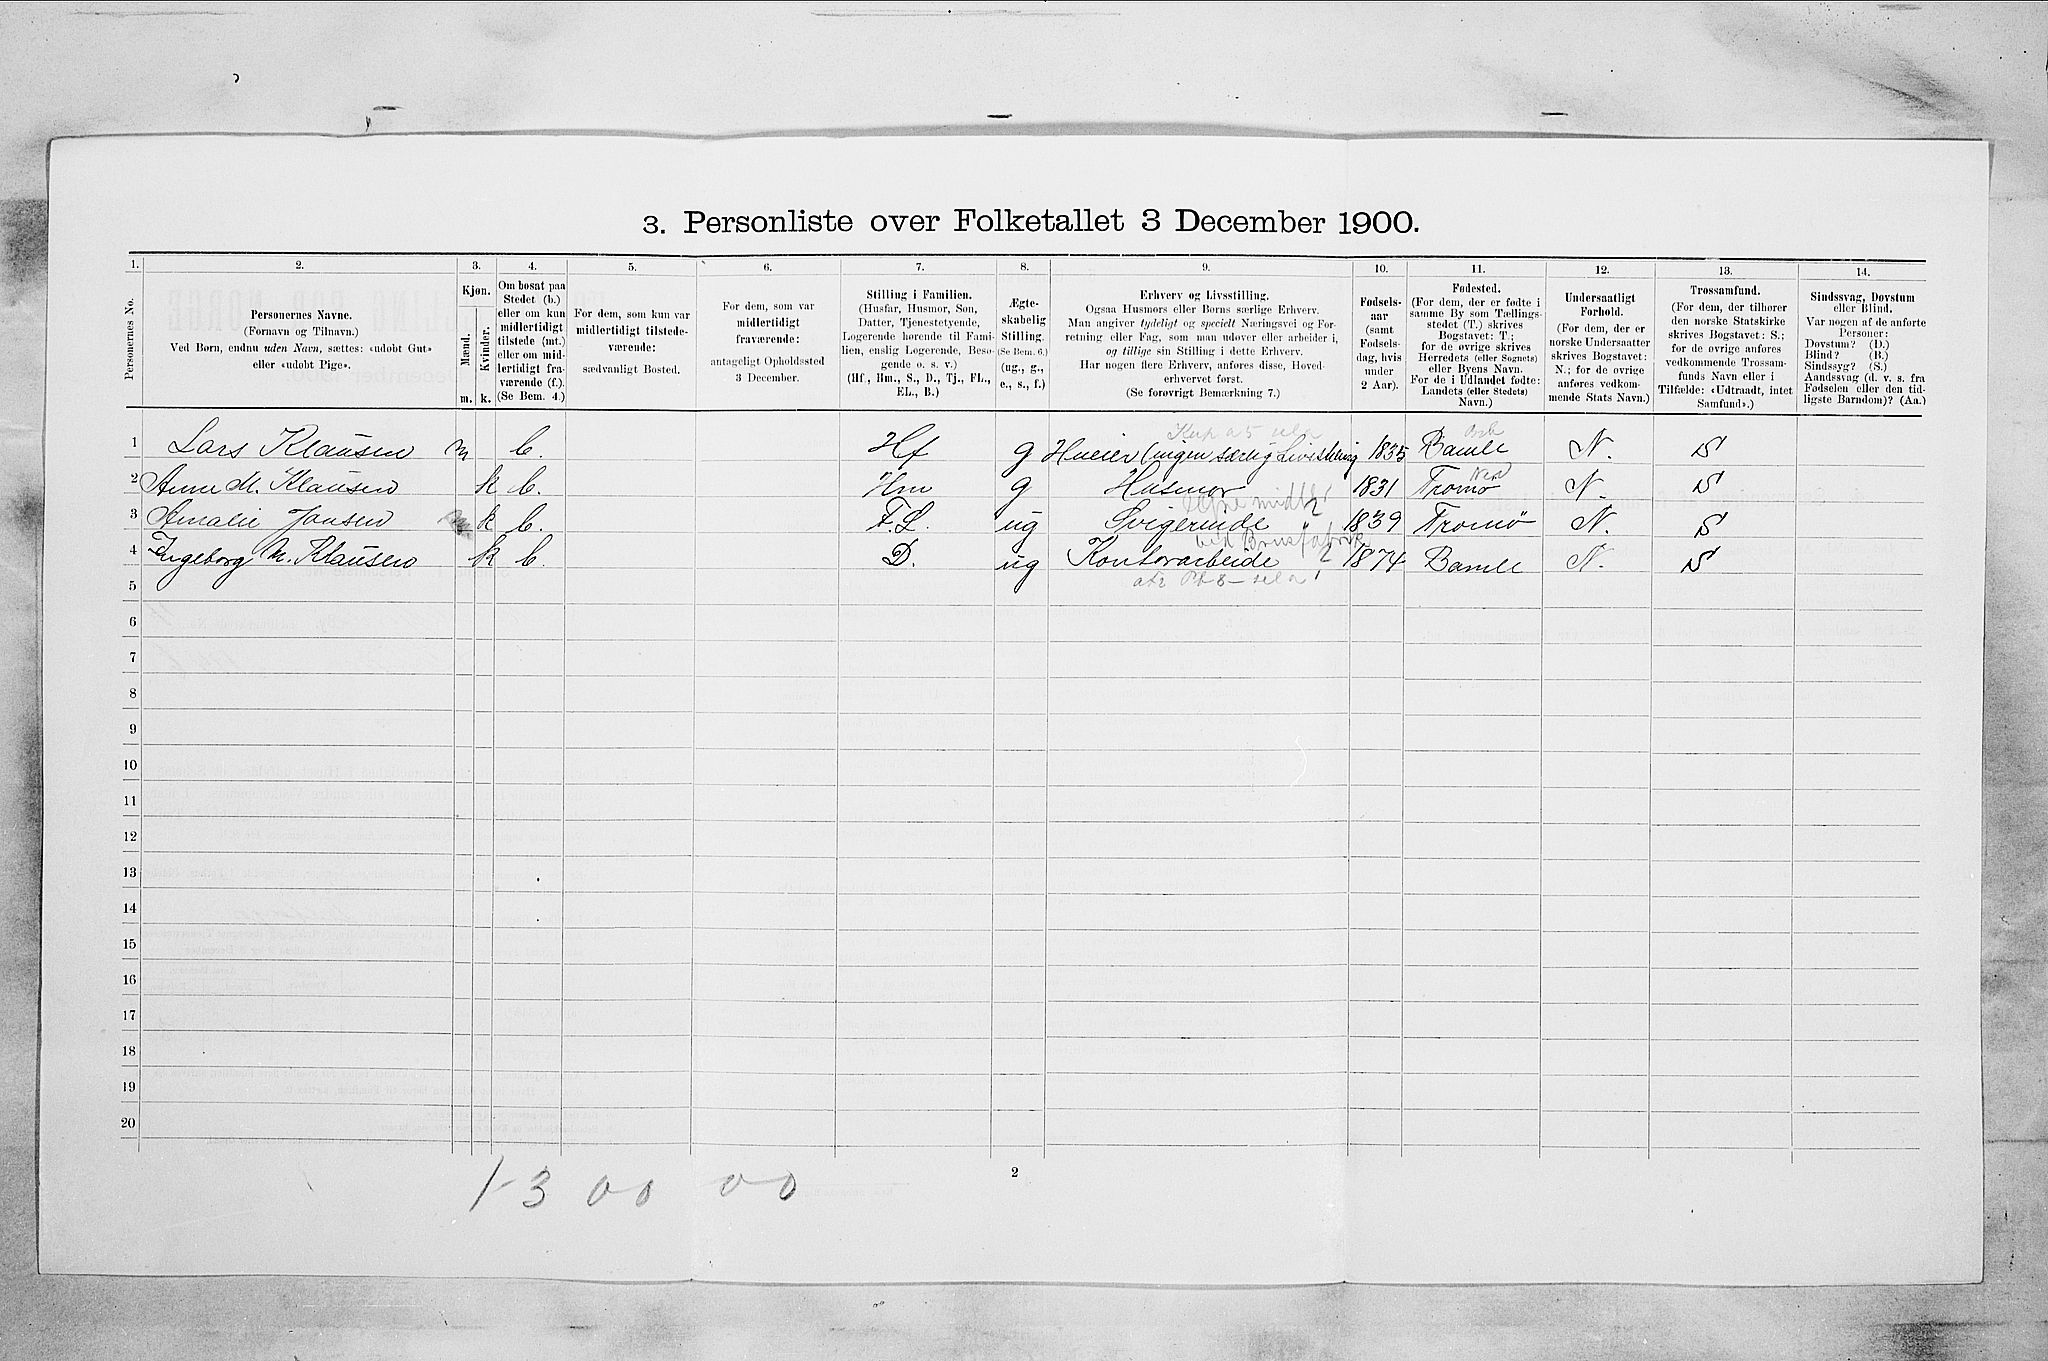 3. Personliste over Folketallet 3 December 1900.
1. 2. 3. 4. 5. 6. 7. 8. 9. 10. 11. 12. 13. 14.
Personernes No.
Personernes Navne.
(Fornavn og Tilnavn.)
Ved Børn, endnu uden Navn, sættes: «udøbt Gut»
eller «udøbt Pige».
Kjøn.
Mænd.
Kvinder.
m. k.
Om bosat paa
Stedet (b.)
eller om kun
midlertidigt
tilstede (mt.)
eller om mid-
lertidigt fra-
værende (f.).
(Se Bem. 4.)
For dem, som kun var
midlertidigt tilstede-
værende:
sædvanligt Bosted.
For dem, som var
midlertidigt
fraværende:
antageligt Opholdssted
3 December.
Stilling i Familien.
(Husfar, Husmor, Søn,
Datter, Tjenestetyende,
Logerende hørende til Fami-
lien, enslig Logerende, Besø-
gende o. s. v.)
(Hf, Hm., S., D., Tj., FL.,
EL., B.)
Ægte-
skabelig
Stilling.
(Se Bem. 6.)
(ug., g.,
e., s., f.)
Erhverv og Livsstilling.
Ogsaa Husmors eller Børns særlige Erhverv.
Man angiver tydeligt og specielt Næringsvei og For-
retning eller Fag, som man udøver eller arbeider i,
og tillige sin Stilling i dette Erhverv.
Har nogen flere Erhverv, anføres disse, Hoved-
erhvervet først.
(Se forøvrigt Bemærkning 7.)
Fødsels-
aar
(samt
Fødsels-
dag, hvis
under
2 Aar).
Fødested.
(For dem, der er fødte i
samme By som Tællings-
stedet (T.) skrives
Bogstavet: T.;
for de øvrige skrives
Herredets (eller Sognets)
eller Byens Navn.
For de i Udlandet fødte:
Landets (eller Stedets)
Navn.)
Undersaatligt
Forhold.
(For dem, der er
norske Undersaatter
skrives Bogstavet:
N.; for de øvrige
anføres vedkom-
mende Stats Navn.)
Trossamfund.
(For dem, der tilhører
den norske Statskirke
skrives Bogstavet: S.;
for de øvrige anføres
vedkommende Trossam-
funds Navn eller i
Tilfælde: «Udtraadt, intet
Samfund».)
Sindssvag, Døvstum
eller Blind.
Var nogen af de anførte
Personer:
Døvstum? (D.)
Blind? (B.)
Sindssyg? (S.)
Aandssvag (d. v. s. fra
Fødselen eller den tid-
ligste Barndom)? (Aa.)
1 Lars Klausen m b. Hf g Hueier (ingen særlig Livsstilling 1835 Bamle N. S
2 Anne M. Klausen k b. Hm g Husmor 1831 Tromø N. S
3 Amalie Jansen k b. F.L. ug Svigerinde 1839 Tromø N. S
4 Ingeborg M. Klausen k b. D. ug Kontorarbeide 1874 Bamle N. S
5
6
7
8
9
10
11
12
13
14
15
16
17
18
19
20
1-3 00 00
2